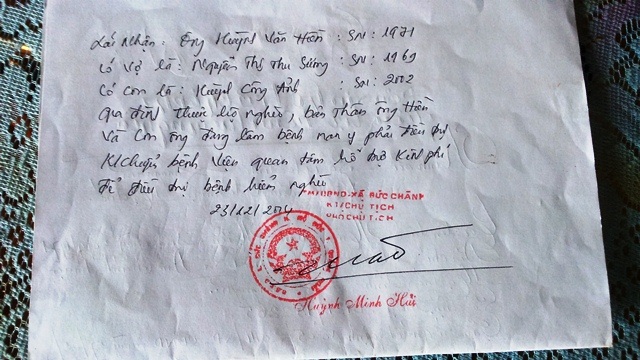 Xác Nhận : Ông Huỳnh Văn Hồn : SN : 1971
Có vợ là : Nguyễn Thị Thu Sương : SN : 1969
Có con là : Huỳnh Công Ảnh : SN : 2002
Gia đình thuộc hộ nghèo, bản thân ông Hồn
và con ông đang lâm bệnh nan y phải điều trị
Kính bệnh viện quan tâm hỗ trợ kinh phí
để điều trị bệnh hiểm nghèo
23/12/
TM/UBND.XÃ ĐỨC CHÁNH
KT/CHỦ TỊCH
PHÓ CHỦ TỊCH
Huỳnh Minh